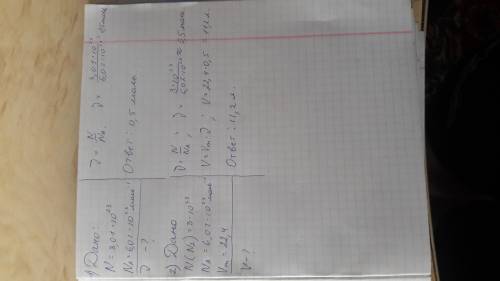 1) Дано:
N = 3,01·10²³
Nₐ = 6,02·10²³ моль⁻¹
ϑ - ?
ϑ = N/Nₐ ϑ = 3,01·10²³/6,02·10²³ = 0,5 моль
Ответ: 0,5 моль
2) Дано
N(N₂) = 3·10²³
Nₐ = 6,02·10²³ моль⁻¹
Vm = 22,4
V - ?
ϑ = N/Nₐ, ϑ = 3·10²³/6,02·10²³ = 0,5 моль
V = Vm·ϑ; V = 22,4·0,5 = 11,2 л.
Ответ: 11,2 л.